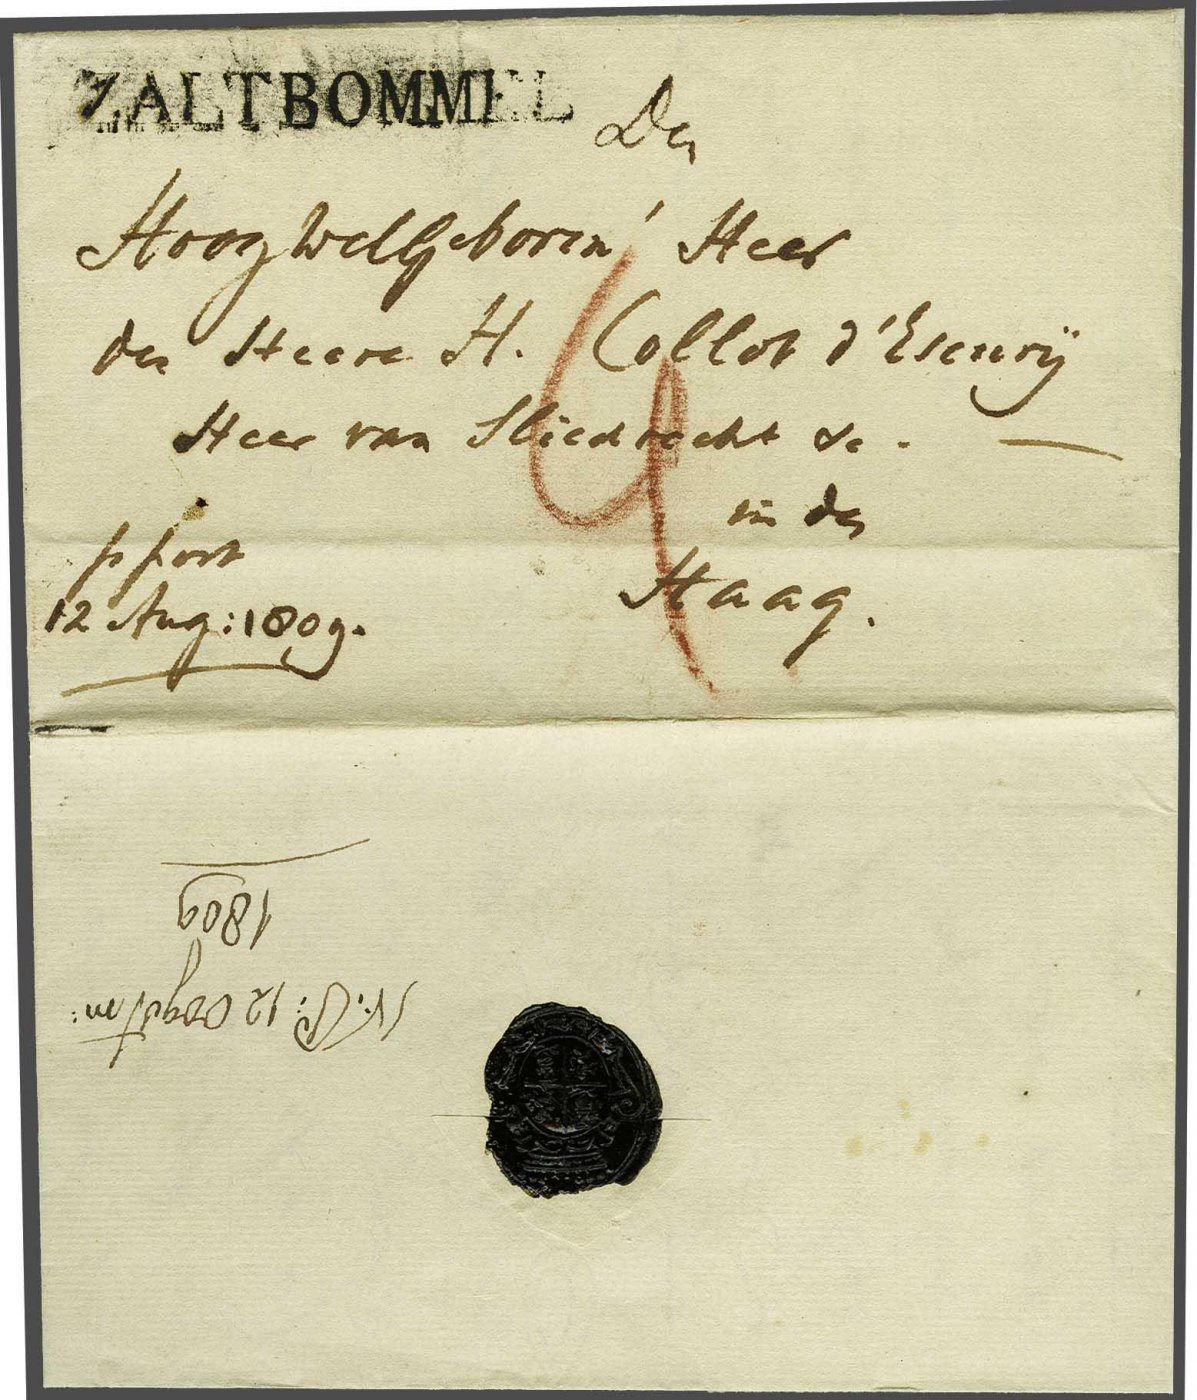 ZALTBOMMEL
Den
HoogWelGeboren Heer
den Heere H. Collot d'Escurÿ
Heer van Sliedrecht &c.
in den
Haag.
p post
12 Aug: 1809.
4
12
1809